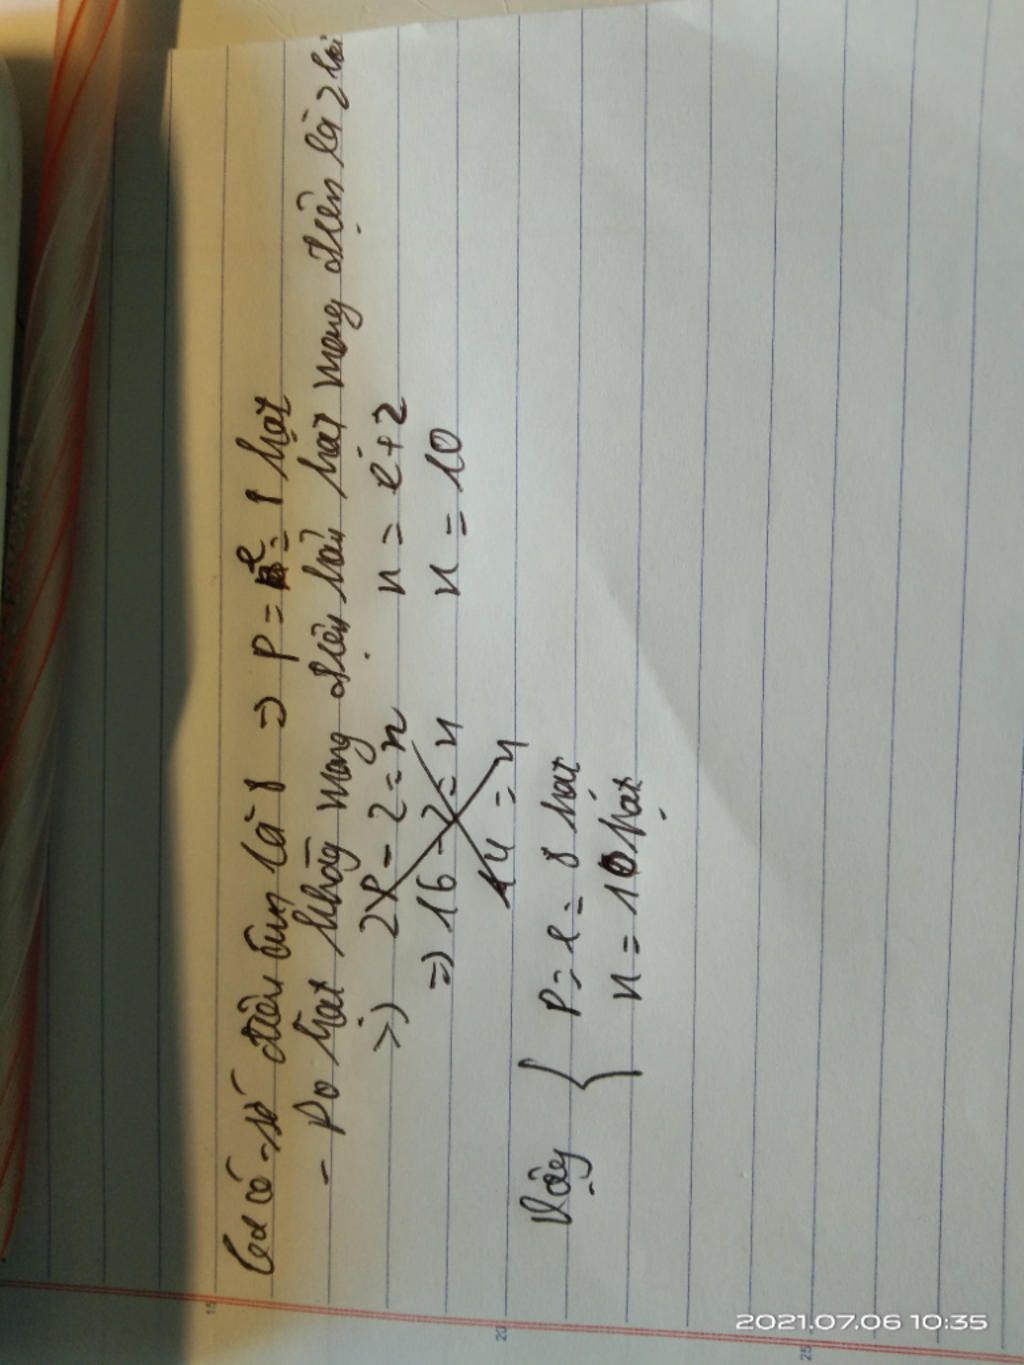 Ta có số điện âm là 8 => P = e = 8 hạt
- Do hạt không mang điện hơn hạt mang điện là 2 hạt
=> 2P - 2 = n n = e + 2
=> 16 - 2 = n n = 10
14 = n
Vậy { P = e = 8 hạt
n = 10 hạt
15
20
25
2021.07.06 10:35